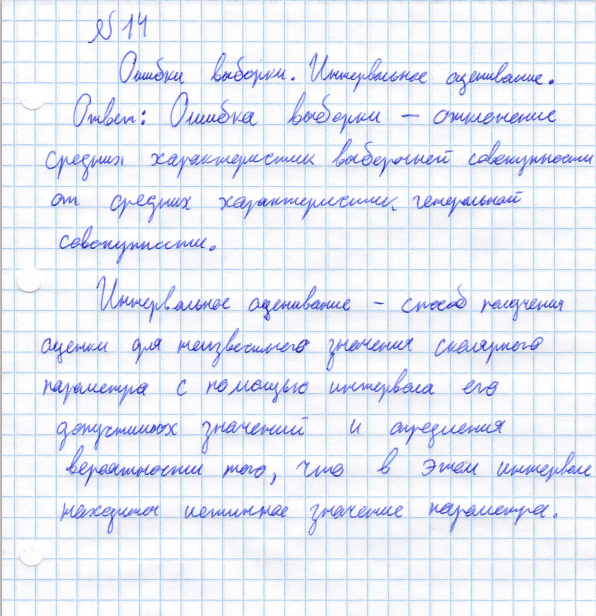 № 14
Ошибки выборки. Интервальное оценивание.
Ответ: Ошибка выборки – отклонение
средних характеристик выборочной совокупности
от средних характеристик генеральной
совокупности.
Интервальное оценивание – способ получения
оценки для неизвестного значения скалярного
параметра с помощью интервала его
допустимых значений и определения
вероятности того, что в этом интервале
находится истинное значение параметра.